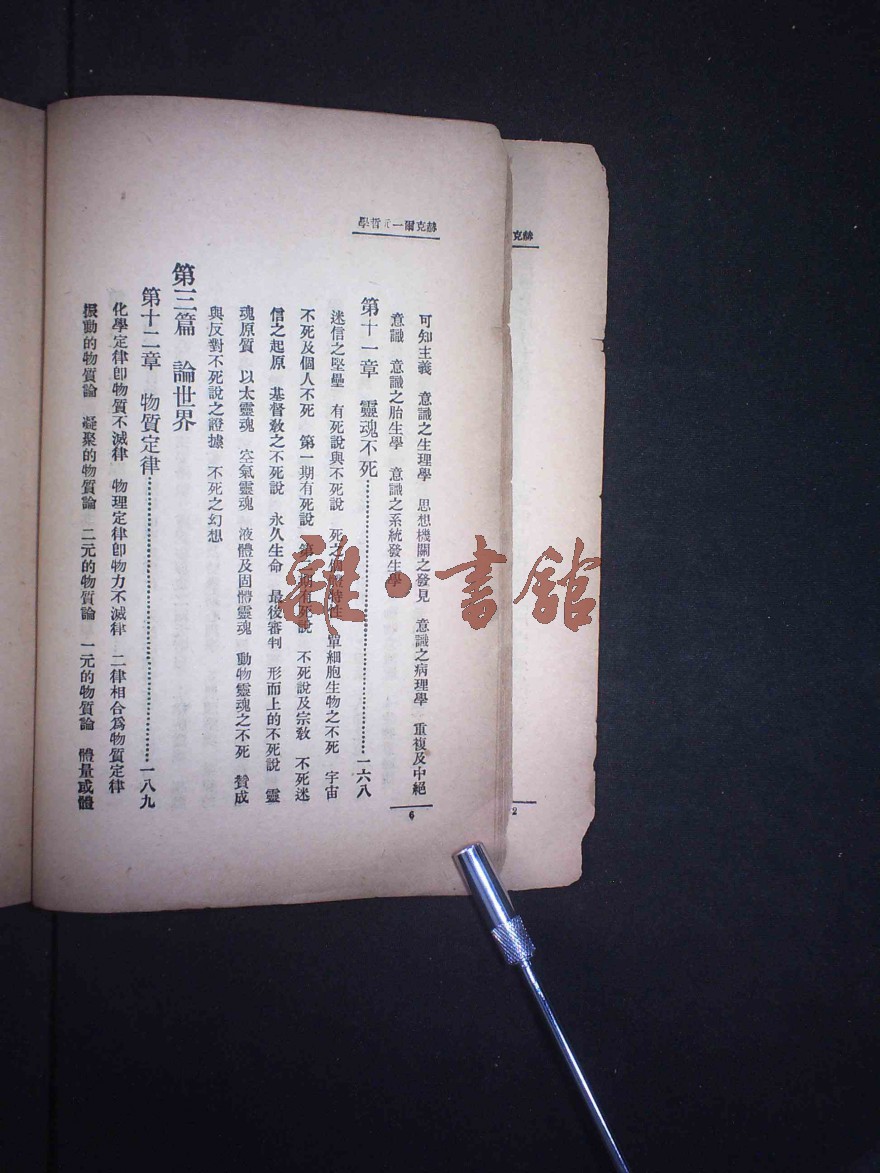 赫克爾一元哲學
可知主義　意識之生理學　思想機關之發見　意識之病理學　重複及中絕
意識　意識之胎生學　意識之系統發生學
第十一章　靈魂不死……一六八
迷信之堅壘　有死說與不死說　死之特性　單細胞生物之不死　宇宙
不死及個人不死　第一期有死說　第二期有死說　不死說及宗敎　不死迷
信之起原　基督敎之不死說　永久生命　最後審判　形而上的不死說　靈
魂原質　以太靈魂　空氣靈魂　液體及固體靈魂　動物靈魂之不死　贊成
與反對不死說之證據　不死之幻想
第三篇　論世界
第十二章　物質定律……一八九
化學定律卽物質不滅律　物理定律卽物力不滅律　二律相合爲物質定律
振動的物質論　凝聚的物質論　二元的物質論　一元的物質論　體量或體
6
赫克
2
雜·書館